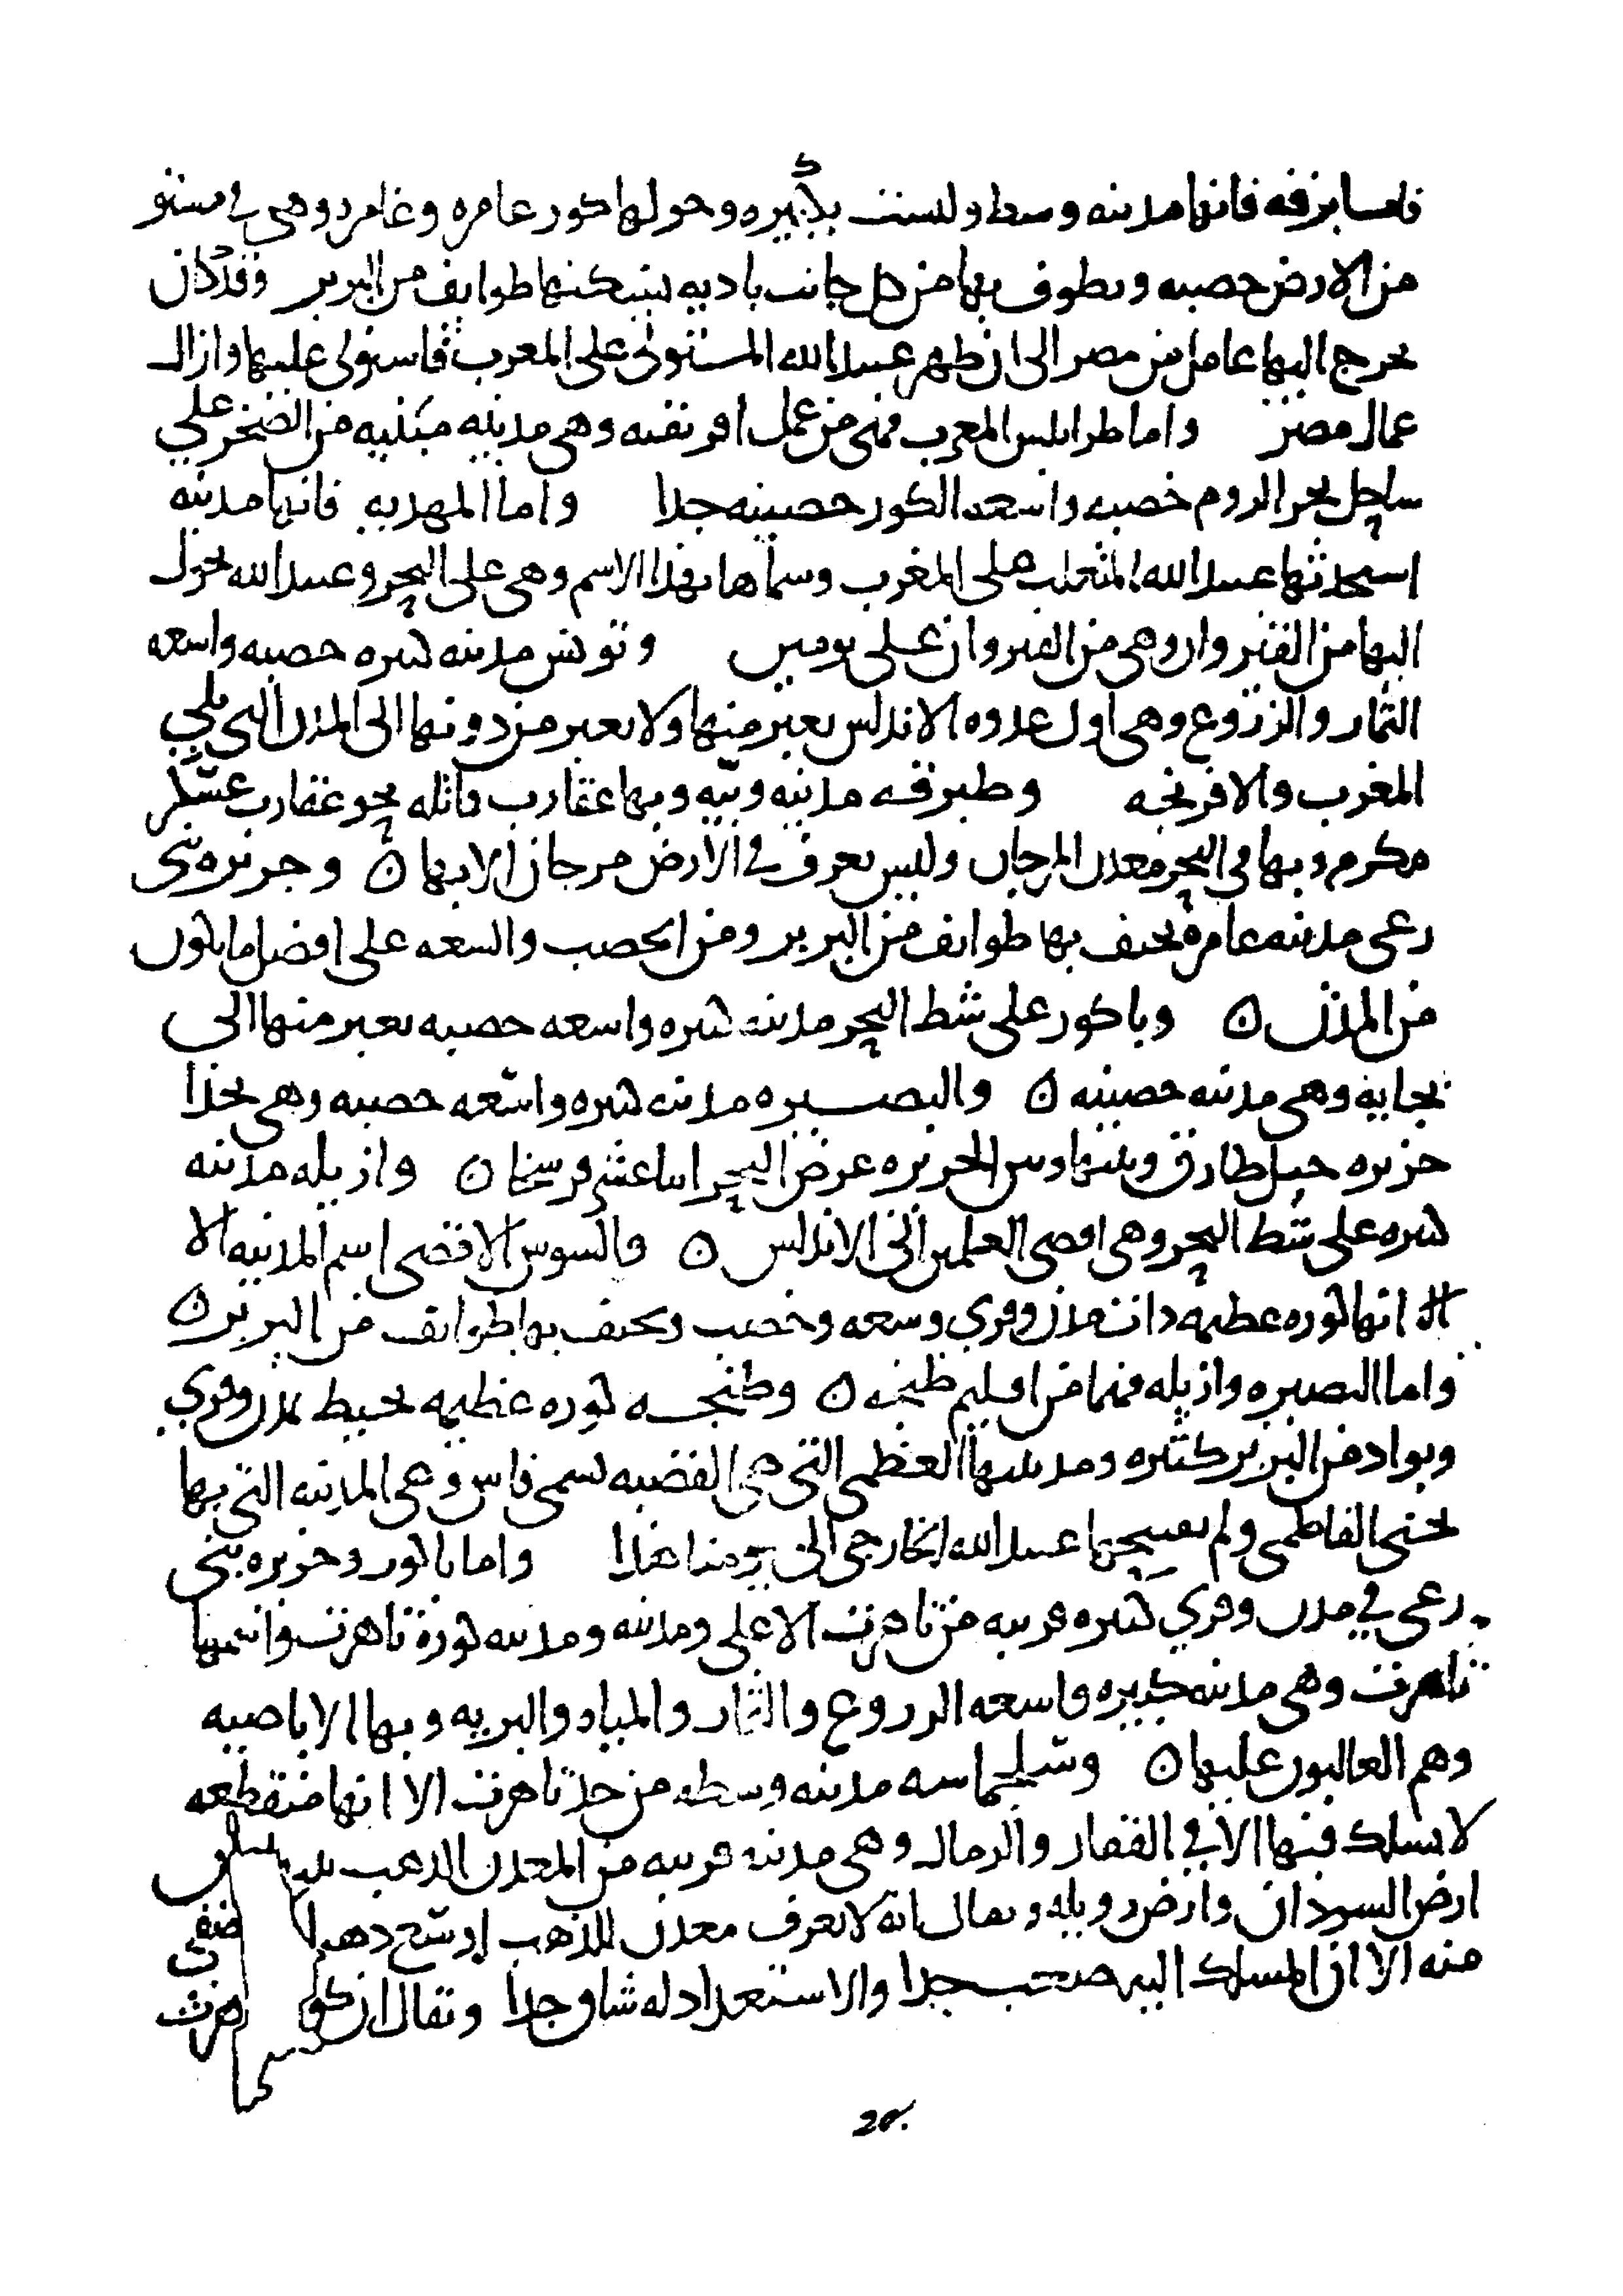 فاما برقه فانها مدينه وسط وليست بكبيره وحولها كور عامره وغامره وهى في مستو
من الارض خصبه ويطوف بها من كل جانب باديه يسكنها طوايف من البربر وقد كان
يخرج اليها عامل من مصر الى ان ظهر عبيد الله المستولى على المغرب فاستولى عليها وازال
عمال مصر واما طرابلس المغرب فهى من عمل افريقيه وهى مدينه مبنيه من الصخر على
ساحل بحر الروم خصبه واسعه الكور حصينه جدا واما المهديه فانها مدينه
استحدثها عبيد الله المتغلب على المغرب وسماها بهذا الاسم وهى على البحر وعبيد الله تحول
اليها من القيروان وهى من القيروان على يومين وتونس مدينه كبيره خصبه واسعه
الثمار والزروع وهى اول عدوه الاندلس يعبر منها ولا يعبر من دونها الى المدن التى تلى
المغرب والافرنجه وطبرقه مدينه وبيه وبها عقارب قاتله نحو عقارب عسكر
مكرم وبها في البحر معدن المرجان وليس يعرف في الارض مرجان الا بها ن وجزيره بنى
رعى مدينه عامره يحتف بها طوايف من البربر ومن الخصب والسعه على افضل ما يكون
من المدن ن وباكور على شط البحر مدينه كبيره واسعه خصبه يعبر منها الى
بجايه وهى مدينه حصينه ن والبصيره مدينه كبيره واسعه خصبه وهى بحذا
جزيره جبل طارق وبينها وبين الجزيره عرض البحر اثنا عشر فرسخا ن وازيله مدينه
كبيره على شط البحر وهى اقصى العملين الى الاندلس ن والسوس الاقصى اسم المدينه الا
الا انها كوره عظيمه ذات مدن وقرى وسعه وخصب ويحتف بها طوايف من البربر ن
واما البصيره وازيله فهما من اقليم طنجه ن وطنجه كوره عظيمه تحيط بمدن وقرى
وبواد من البربر كثيره ومدينتها العظمى التى هى القصبه تسمى فاس وهى المدينه التى بها
يحيى الفاطمى ولم يفتحها عبيد الله الخارجى الى يومنا هذا واما باكور وجزيره بنى
رعى في مدن وقرى كثيره قريبه من تاهرت الاعلى ومدينه ومدينه كورة تاهرت واسمها
تاهرت وهى مدينه كبيره واسعه الزروع والثمار والمياه والبريه وبها الاباضيه
وهم الغالبون عليها ن وسجلماسه مدينه وسطه من حد تاهرت الا انها منقطعه
لا يسلك فيها الا في القفار والرمال وهى مدينه قريبه من المعدن الذهب بينها وبين
ارض السودان وارض زويله ويقال انه لا يعرف معدن للذهب اوسع ذهبا اصفى
منه الا ان المسلك اليه صعب جدا والاستعداد له شاق جدا ويقال ان كوره تاهرت